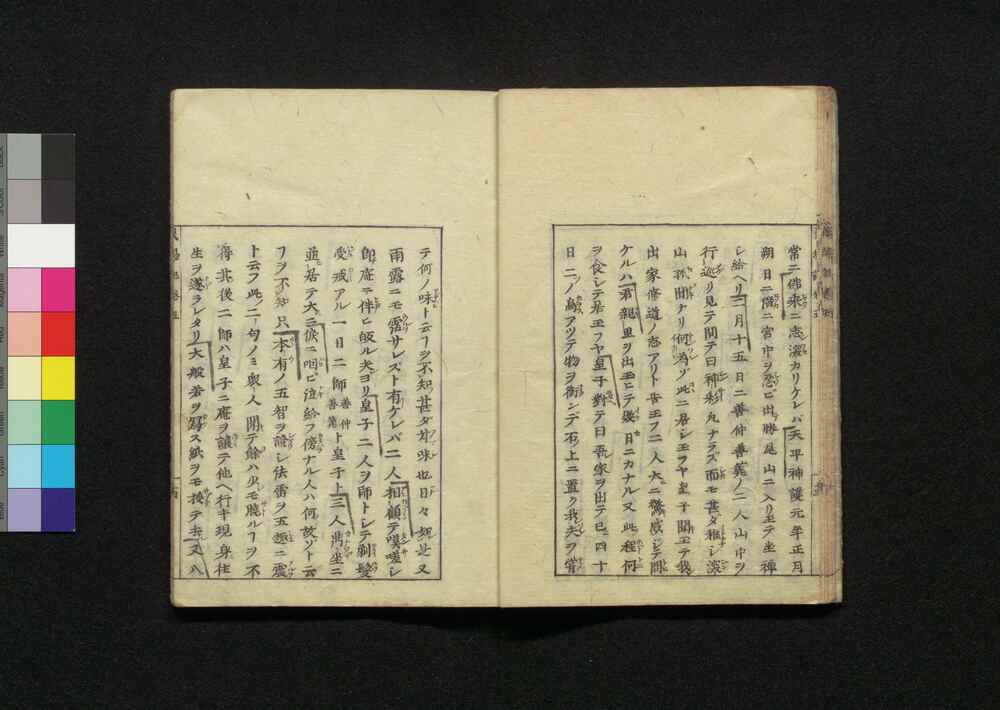 常ニ佛乘ニ志深カリケレバ天平神護元年正月
朔日ニ潜ニ宮中ヲ忍ビ出勝尾山ニ入リ玉テ坐禪
シ給ヘリ二月十五日ニ善仲善算ノ二人山中ヲ
行巡リ見テ問テ曰神彩凡ナラズ面モ甚タ稚シ深
山ニ何為ゾ此ニ君シ玉ヲヤ皇子聞玉テ我
出家修道ノ志アリト世王フ二人大ニ驚感シテ問
ケルハ君親里ヲ出玉ヒテ幾日ニカナルヤ又此程何
ヲ食シテ居玉フヤ皇子對テ曰吾家ヲ出テ已ニ四十
日二ノ鳥アツテ物ヲ銜ンデ石上ニ置ク我夫ヲ嘗
テ何ノ味ト云フヲ不知甚ダ妙味也日々如是又
雨露ニモ霑サレズト有ケレバ二人相顧テ嘆嗟シ
即庵ニ伴ヒ皈ル夫ヨリ皇子二人ヲ師トシテ剃髪
受戒アル一日二師善仲善算ト皇子ト三人禺坐ニ
並居テ大ニ涙ニ咽ビ泣給フ傍ナル人ハ何故ゾト云
フヲ不知只本有ノ五智ヲ證シ法雷ヲ五趣ニ震
ト云フ此ノ二句ノミ衆人聞テ餘ハ少モ曉ルヿヲ不
得其後二師ハ皇子ニ庵ヲ譲テ他ヘ行キ現身往
生ヲ遂ラレタリ大般若ヲ寫ス紙ヲモ授テ去又八